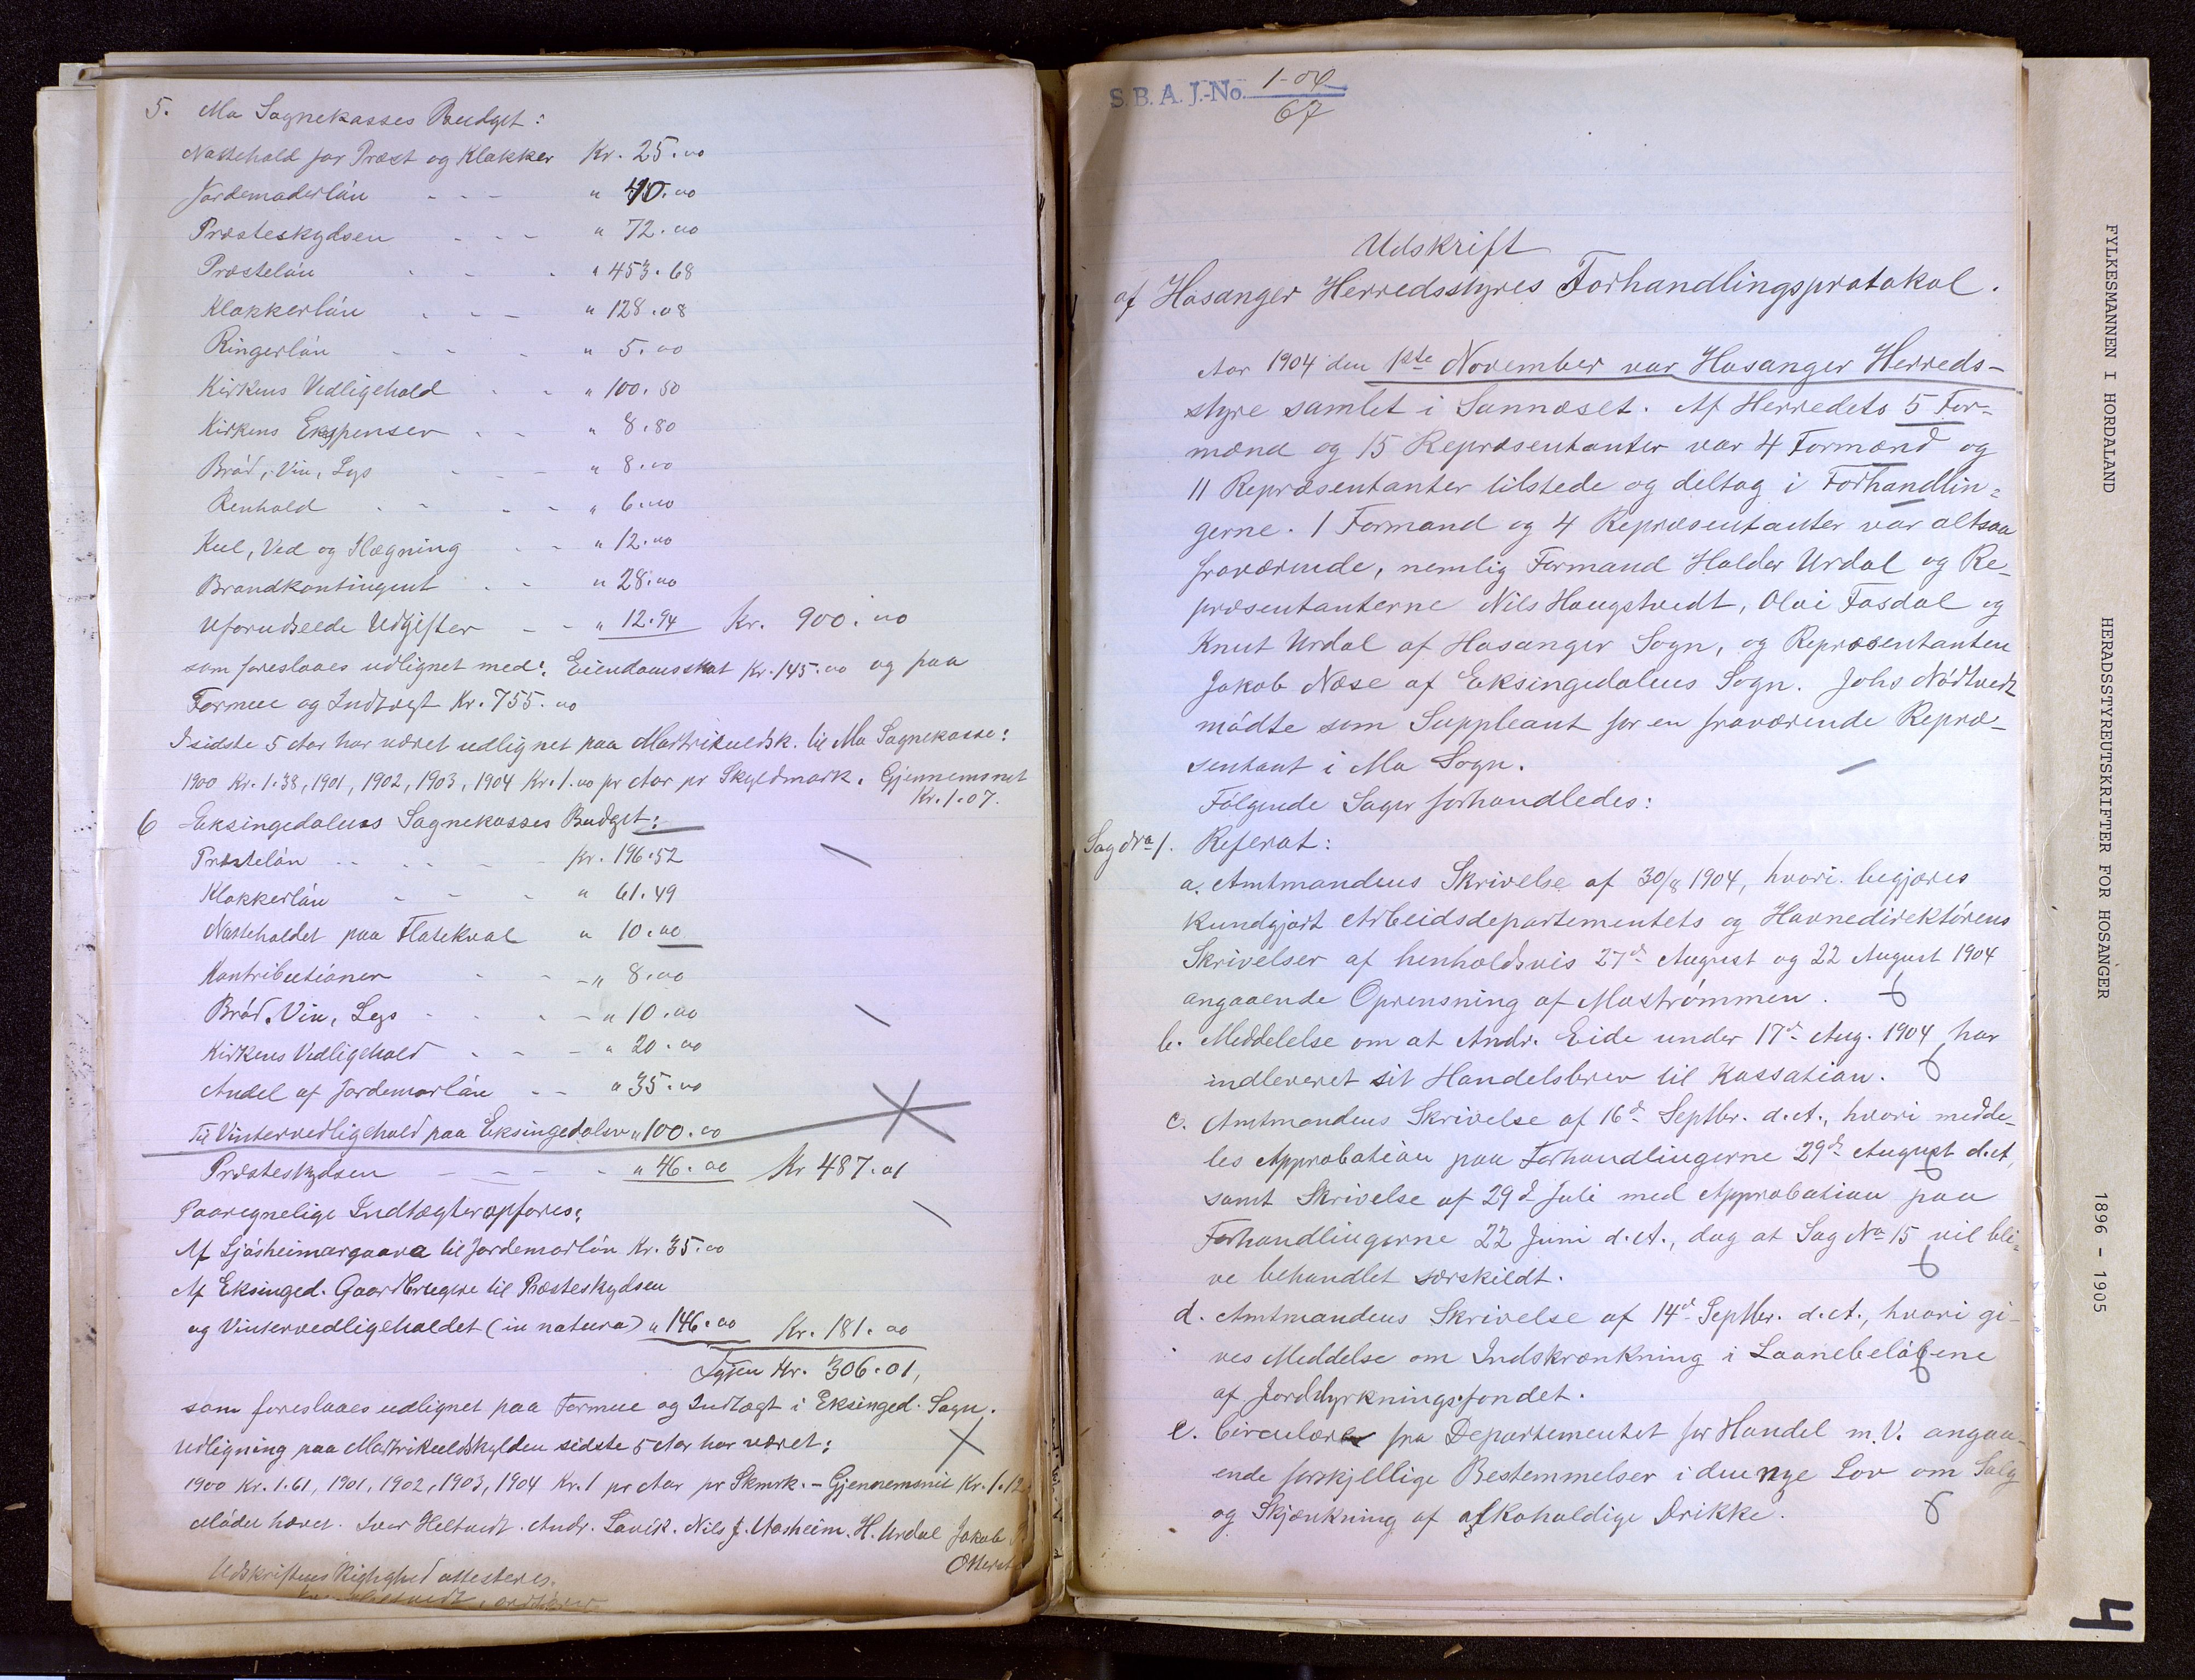 5. Mo Sognekasses Budget:
Nattehold for Præst og Klokker Kr. 25.00
Jordemoderløn - - - " 40.00
Præsteskydsen - - - " 72.00
Presteløn - - - " 453.68
Klokkerløn - - - " 128.08
Ringerløn - - - " 5.00
Kirkens Vedligehold - - " 100.50
Kirkens Expenser - - " 8.80
Brød, Vin, Lys - - " 8.00
Renhold - - - - " 6.00
Kul, Ved og Lægning - - " 12.00
Brandkontingent - - " 28.00
Uforudseede Udgifter - - " 12.94 Kr. 900.00
som foreslaaes udlignet med: Eiendomsskat Kr. 145.00 og paa
Formue og Indtægt Kr. 755.00
I sidste 5 Aar har været udlignet paa Matrikulsk. til Mo Sognekasse:
1900 Kr. 1.38, 1901, 1902, 1903, 1904 Kr. 1.00 pr Aar pr Skyldmark. Gjennemsnit
Kr. 1.07.
6 Eksingedalens Sognekasses Budget:
Presteløn - - - - Kr. 196.52
Klokkerløn - - - " 61.49
Natteholdet paa Flatekval " 10.00
Kontributioner - - - " 8.00
Brød, Vin, Lys - - - - " 10.00
Kirkens Vedligehold - - - " 20.00
Andel af Jordemorløn - - " 35.00
Til Vintervedligehold paa Eksingedalsv. " 100.00
Præsteskydsen - - - - " 46.00 Kr 487.01
Paaregnelige Indtægter opføres:
Af Sjøsheimargaara til Jordemorløn Kr. 35.00
Af Eksinged. Gaardbrugere til Præsteskydsen
og Vintervedligeholdet (in natura) " 146.00 Kr. 181.00
Igjen Kr. 306.01,
som foreslaaes udlignet paa Formue og Indtægt i Eksinged. Sogn.
Udligning paa Matrikulskylden sidste 5 Aar har været:
1900 Kr. 1.61, 1901, 1902, 1903, 1904 Kr. 1 pr Aar pr Skmrk. - Gjennemsnit Kr. 1.12
Mødet hævet. Ivar Heltvedt. Andr. Lavik. Nils J. Aasheim. H. Urdal Jakob
Otterst
Udskriftens Rigtighed attesteres.
ordfører
S. B. A. J.-No. 1-04
67
Udskrift
af Hosanger Herredsstyres Forhandlingsprotokol.
Aar 1904 den 1ste November var Hosanger Herreds-
styre samlet i Sannæset. Af Herredets 5 For-
mænd og 15 Repræsentanter var 4 Formænd og
11 Repræsentanter tilstede og deltog i Forhandlin-
gerne. 1 Formand og 4 Repræsentanter var altsaa
fraværende, nemlig Formand Haldor Urdal og Re-
præsentanterne Nils Hougstvedt, Olai Fosdal og
Knut Urdal af Hosanger Sogn, og Repræsentanten
Jakob Næse af Eksingedalens Sogn. Johs Nødtvedt
mødte som Suppleant for en fraværende Repræ-
sentant i Mo Sogn.
Følgende Sager forhandledes:
Sag No 1. Referat:
a. Amtmandens Skrivelse af 30/8 1904, hvori begjæres
kundgjort Arbeidsdepartementets og Havnedirektørens
Skrivelser af henholdsvis 27d August og 22 August 1904
angaaende Oprensning af Mostrømmen.
b. Meddelelse om at Andr. Eide under 17d Aug. 1904 har
indleveret sit Handelsbrev til Kassation.
c. Amtmandens Skrivelse af 16d Septbr. d.A., hvori medde-
les Approbation paa Forhandlingerne 29d August d.A,
samt Skrivelse af 29d Juli med Approbation paa
Forhandlingerne 22 Juni d.A., dog at Sag No 15 vil bli-
ve behandlet særskildt.
d. Amtmandens Skrivelse af 14d Septbr. d.A., hvori gi-
ves Meddelse om Indskrænkning i Laanebeløbene
af Jorddyrkningsfondet.
e. Circulære fra Departementet for Handel m.V. angaa-
ende forskjellige Bestemmelser i den nye Lov om Salg
og Skjænkning af alkoholdige Drikke.
FYLKESMANNEN I HORDALAND HERADSSTYREUTSKRIFTER FOR HOSANGER 1896 - 1905
4